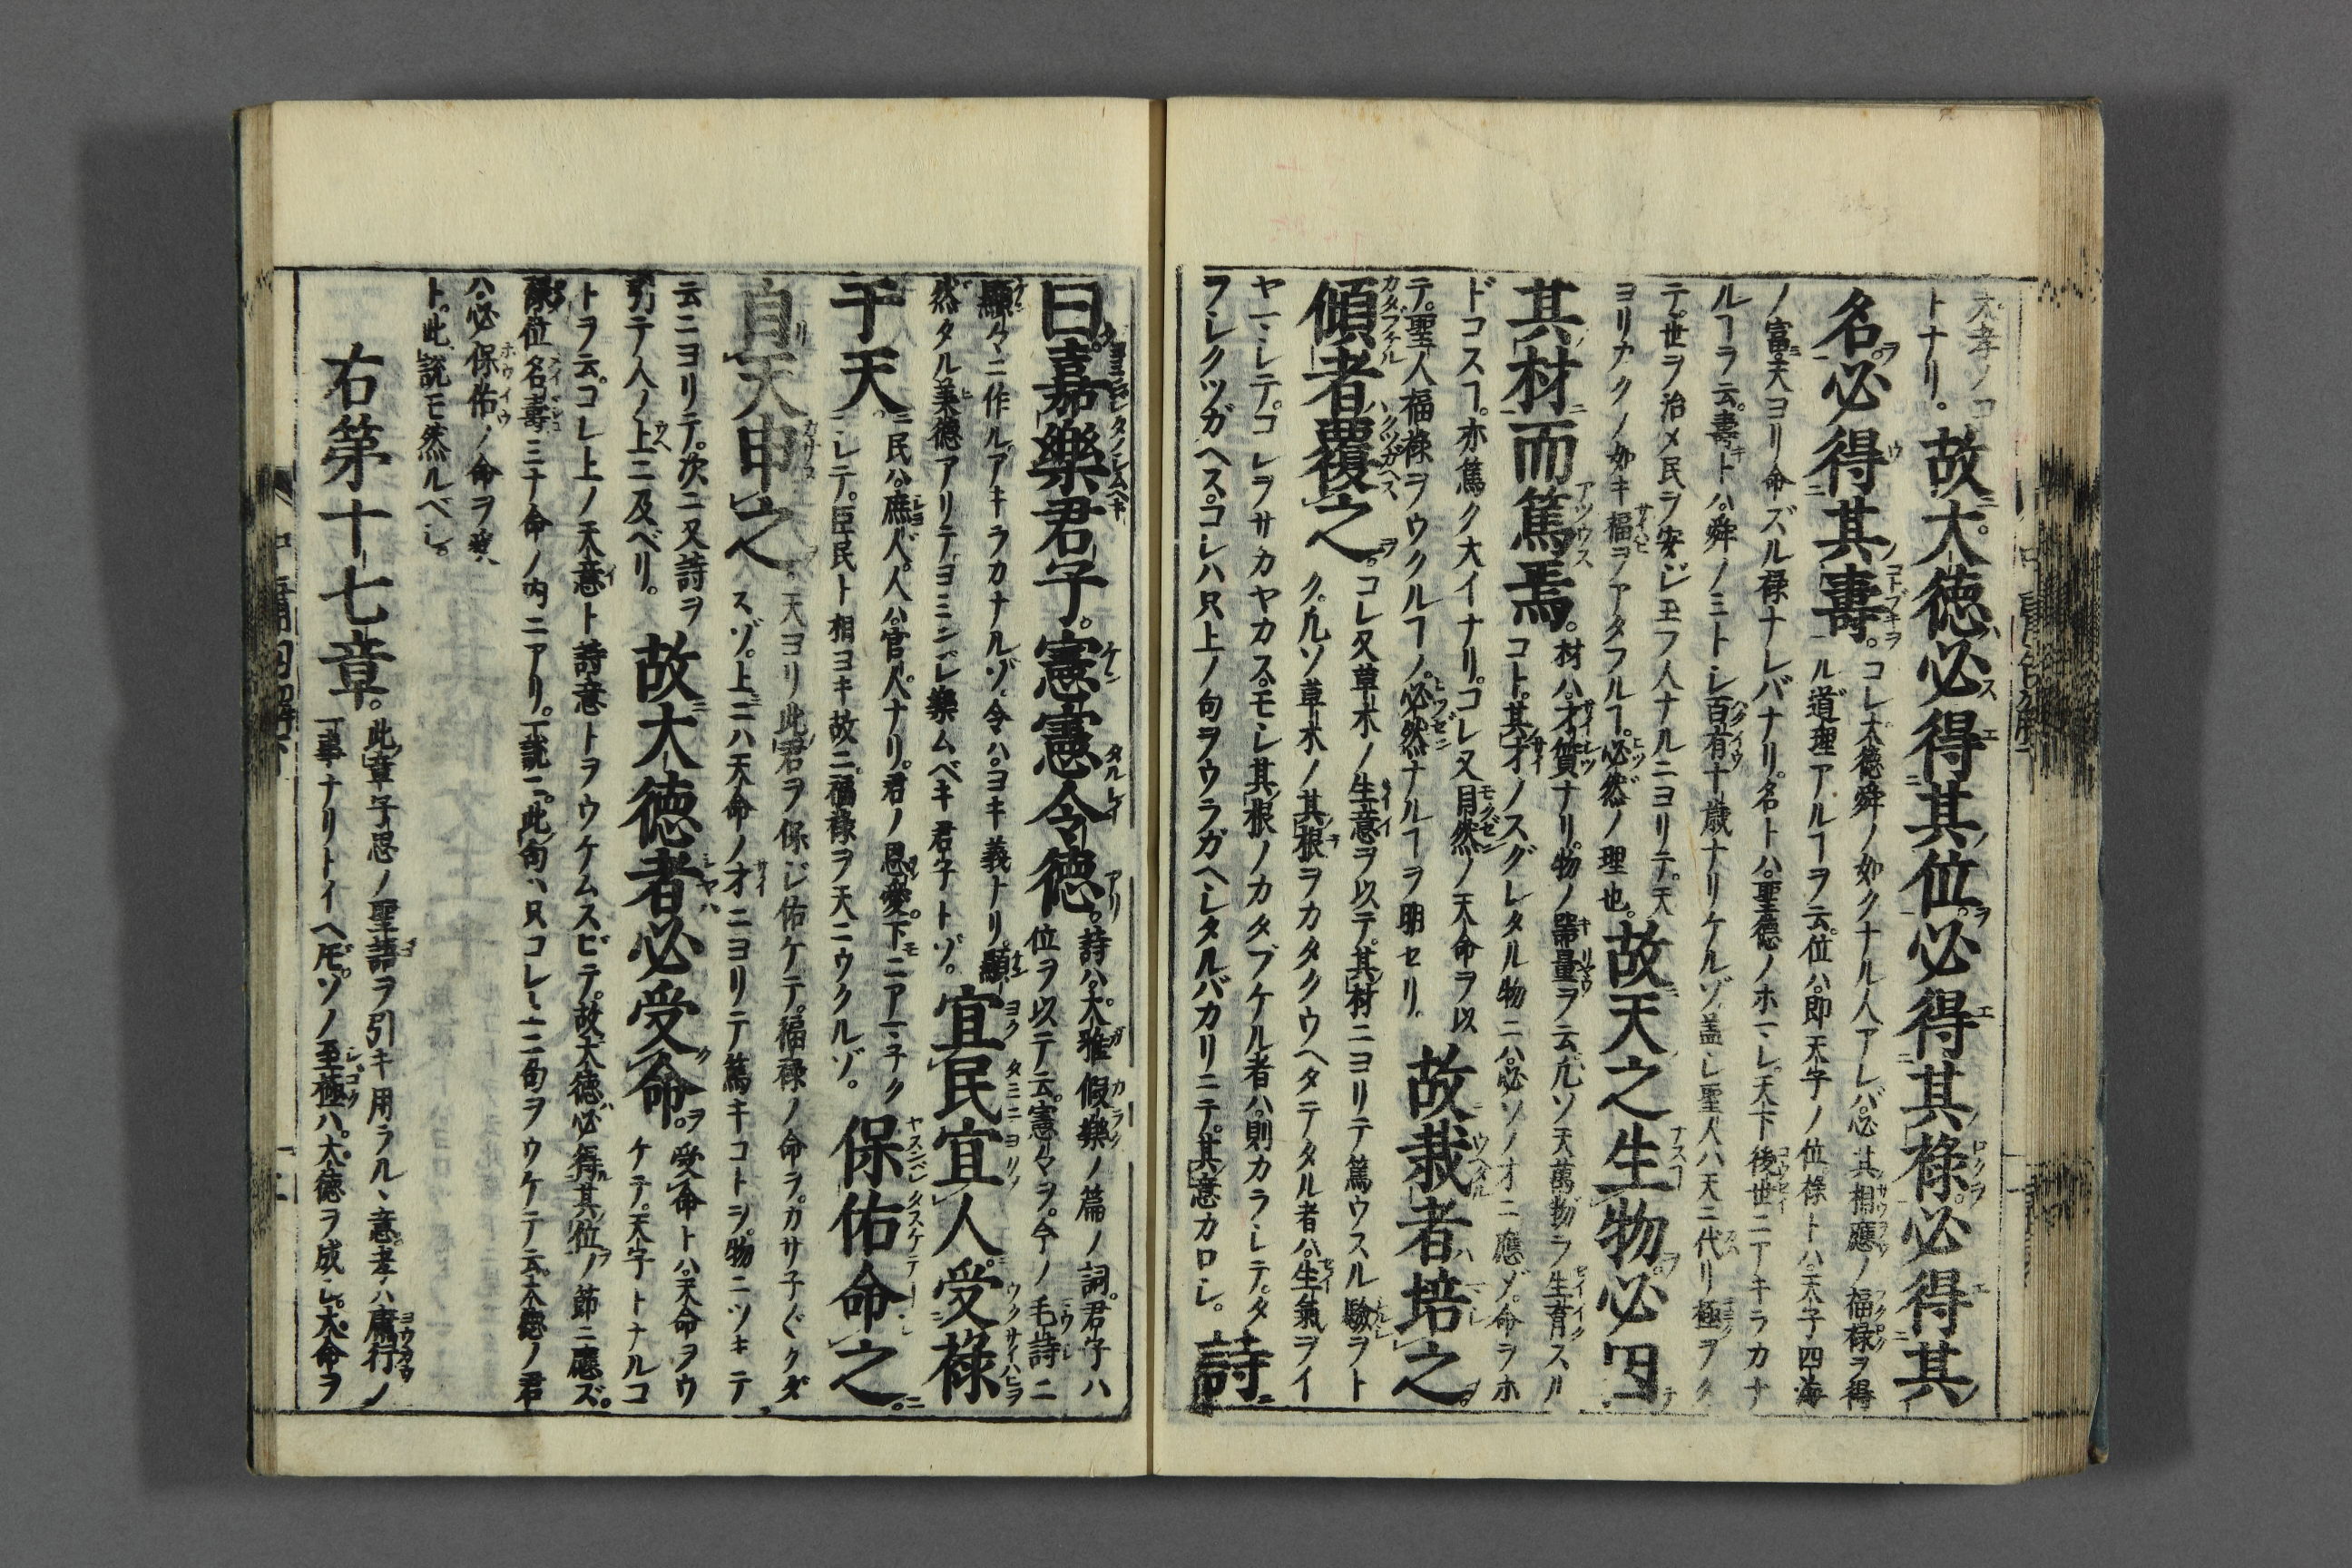 大孝ノコ
トナリ。故大徳必得其位。必得其禄。必得其
名。必得其壽。コレ大徳舜ノ如クナル人アレバ。必其相應ノ福禄ヲ得
ル道理アルヿヲ云。位ハ。即天子ノ位禄トハ。天子四海
ノ富。天ヨリ命ズル禄ナレバナリ。名トハ。聖徳ノホマレ。天下後世ニアキラカナ
ルヿヲ云。壽トハ。舜ノミトシ百有十歳ナリケルゾ。盖シ聖人ハ天ニ代リ極ヲタ
テ。世ヲ治メ民ヲ安ジ玉フ人ナルニヨリテ。天
ヨリカクノ如キ福ヲアタフルヿ。必然ノ理也。故天之生物必因
其材而篤焉。材ハ。才質ナリ。物ノ器量ヲ云。凡ソ天萬物ヲ生育スル
コト。其才ノスグレタル物ニハ。必ソノオニ應ゾ。命ヲホ
ドコスヿ。亦篤ク大イナリ。コレ又目然ノ天命ヲ以
テ。聖人福禄ヲウクルヿノ。必然ナルヿヲ明セリ。故栽者培之
傾者覆之。コレ又草木ノ生意ヲ以テ。其材ニヨリテ篤ウスル驗ヲト
ク。凡ソ草木ノ其根ヲカタクウヘタテタル者ハ。生氣ヲイ
ヤマシテ。コレヲサカヤカス。モシ其根ノカタブケル者ハ。則カラシテ。タ
フレクツガヘス。コレハ只上ノ句ヲウラガヘシタルバカリニテ。其意カロシ。詩
曰嘉樂君子。憲憲令徳。詩ハ。大雅假樂ノ篇ノ詞。君子ハ
位ヲ以テ云。憲々ヲ。今ノ毛詩ニ
顯々ニ作ル。アキラカナルゾ。令ハ。ヨキ義トリ。顯
然タル美徳アリテ。ヨミンジレ樂ムベキ君子トゾ。宜民宜人受禄
于天。民ハ。庶人。人ハ。官人ナリ。君ノ恩愛。下ニアマ子ク
シテ。臣民ト相ヨキ故ニ。福禄ヲ天ニウクルゾ。保佑命之。
自天申之。天ヨリ此君ヲ保ジ佑ケテ。福禄ノ命ヲ。カサ子グクダ
スゾ。上ニハ天命ノオニヨリテ篤キコトヲ。物ニツキテ
云ニヨリテ。次ニ又詩ヲ
引テ人ノ上ニ及ベリ。故大徳者必受命。受命トハ。天命ヲウ
ケテ。天子トナルコ
トヲ云。コレ上ノ天意ト詩意トヲウケムスビテ。故大徳必得其位ノ節ニ應ズ。
禄位名壽三ナ命ノ内ニアリ。一説ニ。此句ハ只コレ上二句ヲウケテ云。大徳ノ君
ハ。必保佑ノ命ヲ受
ト。此説モ然ルベシ。
右第十七章。此章子思ノ聖語ヲ引キ用ラルヽ意。孝ハ庸行ノ
一事ナリトイヘ𪜈。ソノ至極ハ。大徳ヲ成シ。大命ヲ